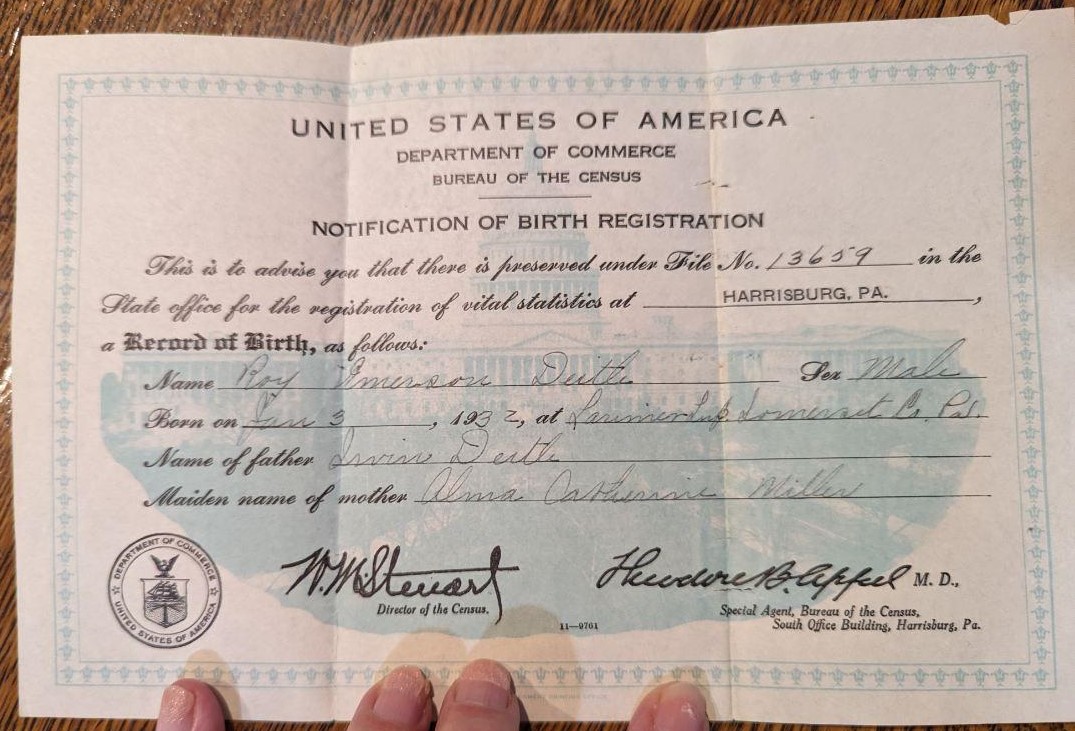 UNITED STATES OF AMERICA
DEPARTMENT OF COMMERCE
BUREAU OF THE CENSUS
NOTIFICATION OF BIRTH REGISTRATION
This is to advise you that there is preserved under File No. 13659 in the
State office for the registration of vital statistics at HARRISBURG, PA.,
a Record of Birth, as follows:
Name Roy Emerson Deitle Sex Male
Born on Jan 3, 1932, at Larimer Twp Somerset Co. Pa.
Name of father Irvin Deitle
Maiden name of mother Alma Catherine Miller
DEPARTMENT OF COMMERCE
UNITED STATES OF AMERICA
W. M. Steuart
Director of the Census.
11—9761
Theodore B. Appel M. D.,
Special Agent, Bureau of the Census,
South Office Building, Harrisburg, Pa.